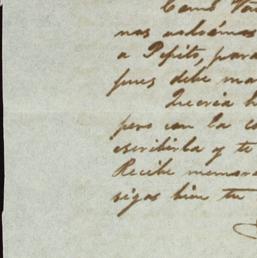 Como
nos
a Pepito, para
pues debe ma
Queria h
pero con la co
escribirla y te
Recibe memor
sigas bien tu